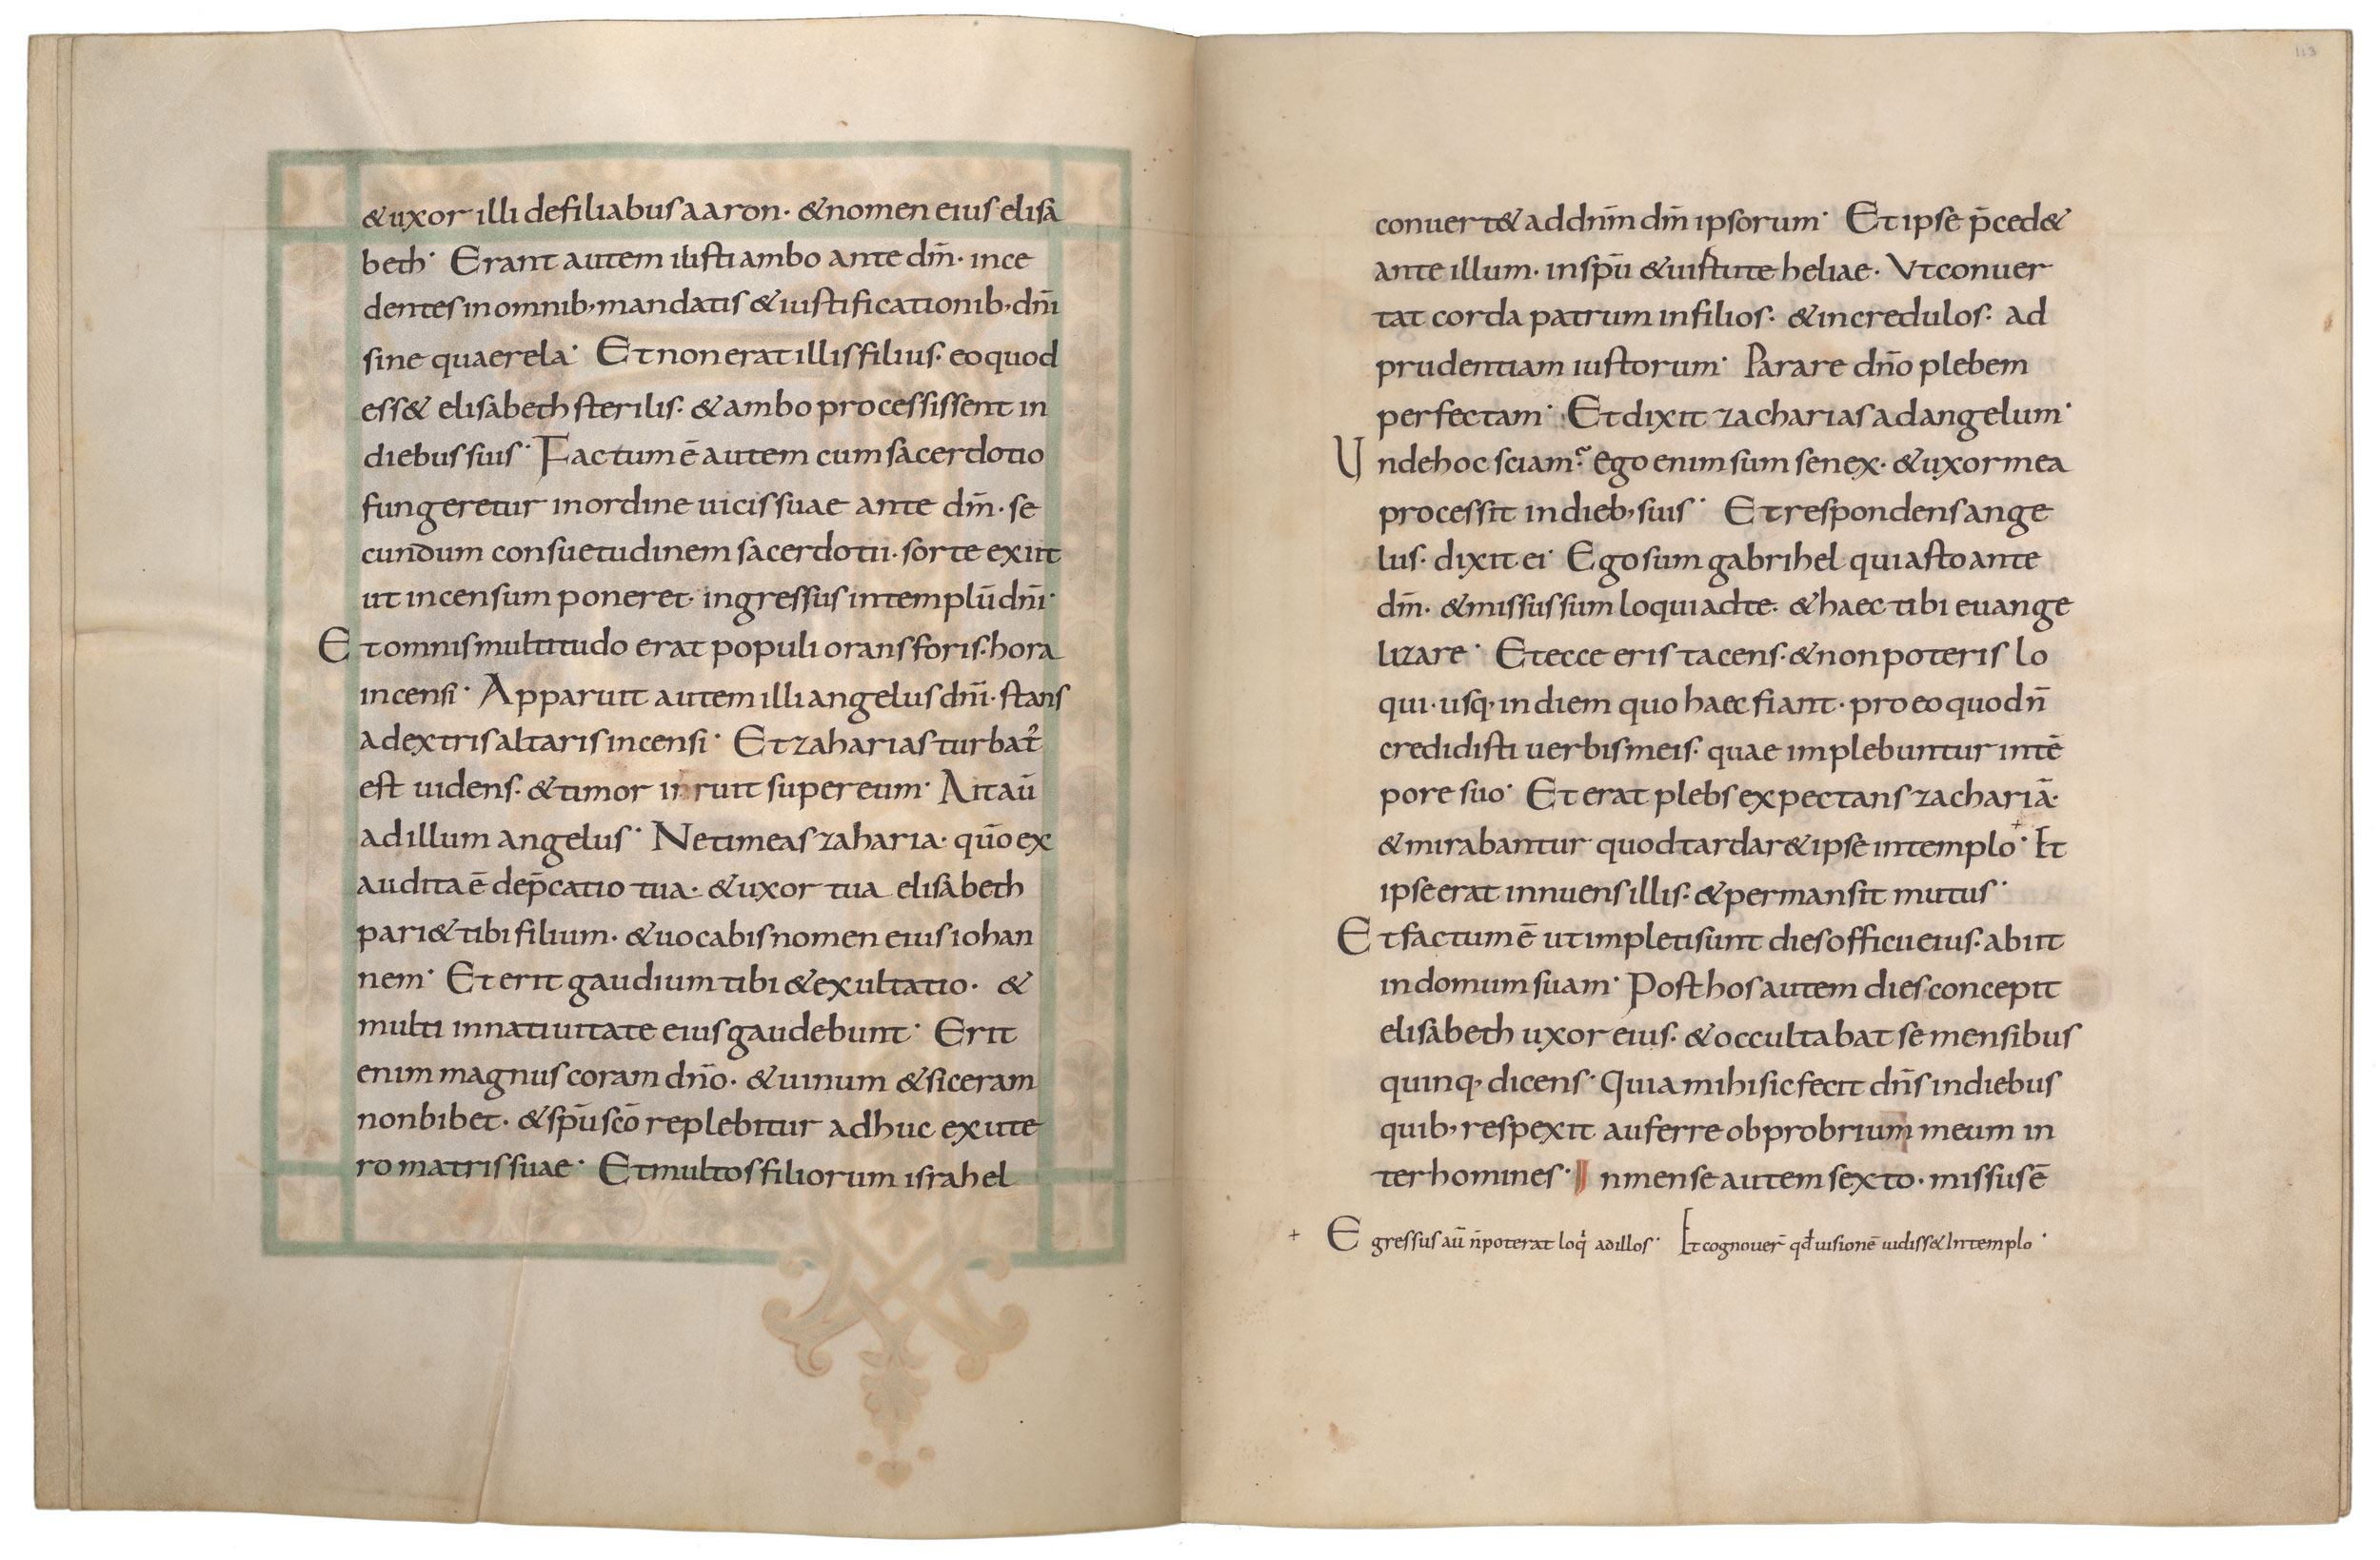 &uxor illi defiliabus aaron· &nomen eius elisa
beth· Erant autem iusti ambo ante dm̄· ince
dentes in omnib; mandatis & iustificationib; dn̄i
sine quaerela· Et non erat illis filius· eo quod
ess& elisabeth sterilis· & ambo processissent in
diebus suis· Factum ē autem cum sacerdotio
fungeretur in ordine uicis suae ante dm̄· se
cundum consuetudinem sacerdotii· sorte exiit
ut incensum poneret· ingressus in templū dn̄i·
Et omnis multitudo erat populi orans foris· hora
incensi· Apparuit autem illi angelus dn̄i· stans
a dextris altaris incensi· Et zaharias turbat᾽
est uidens· & timor inruit super eum· Ait aū
ad illum angelus· Ne timeas zaharia· qūo ex
audita ē dep̄catio tua· & uxor tua elisabeth
pari& tibi filium· & uocabis nomen eius iohan
nem· Et erit gaudium tibi & exultatio· &
multi in natiuitate eius gaudebunt· Erit
enim magnus coram dn̄o· & uinum & siceram
non bibet· & sp̄u scō replebitur adhuc ex ute
ro matris suae· Et multos filiorum israhel
113
conuert& ad dn̄m dm̄ ipsorum· Et ipse p̄ced&
ante illum· in sp̄u & uirtute heliae· Vt conuer
tat corda patrum in filios· & incredulos· ad
prudentiam iustorum· Parare dn̄o plebem
perfectam· Et dixit zacharias ad angelum·
Unde hoc sciam? ego enim sum senex· & uxor mea
processit in dieb; suis· Et respondens ange
lus· dixit ei· Ego sum gabrihel qui asto ante
dm̄· & missus sum loqui ad te· & haec tibi euange
lizare· Et ecce eris tacens· & non poteris lo
qui· usq; in diem quo haec fiant· pro eo quod n̄
credidisti uerbis meis· quae implebuntur in tē
pore suo· Et erat plebs expectans zachariā·
& mirabantur quod tardar& ipse in templo+· Et
ipse erat innuens illis· & permansit mutus·
Et factum ē ut impleti sunt dies officii eius· abiit
in domum suam· Post hos autem dies concepit
elisabeth uxor eius· & occultabat se mensibus
quinq; dicens· Quia mihi sic fecit dn̄s in diebus
quib; respexit auferre obprobrium meum in
ter homines· In mense autem sexto· missus ē
+ Egressus aū n̄ poterat loqi ad illos· Et cognouer̄ qd̄ uisionē uidiss& In templo·